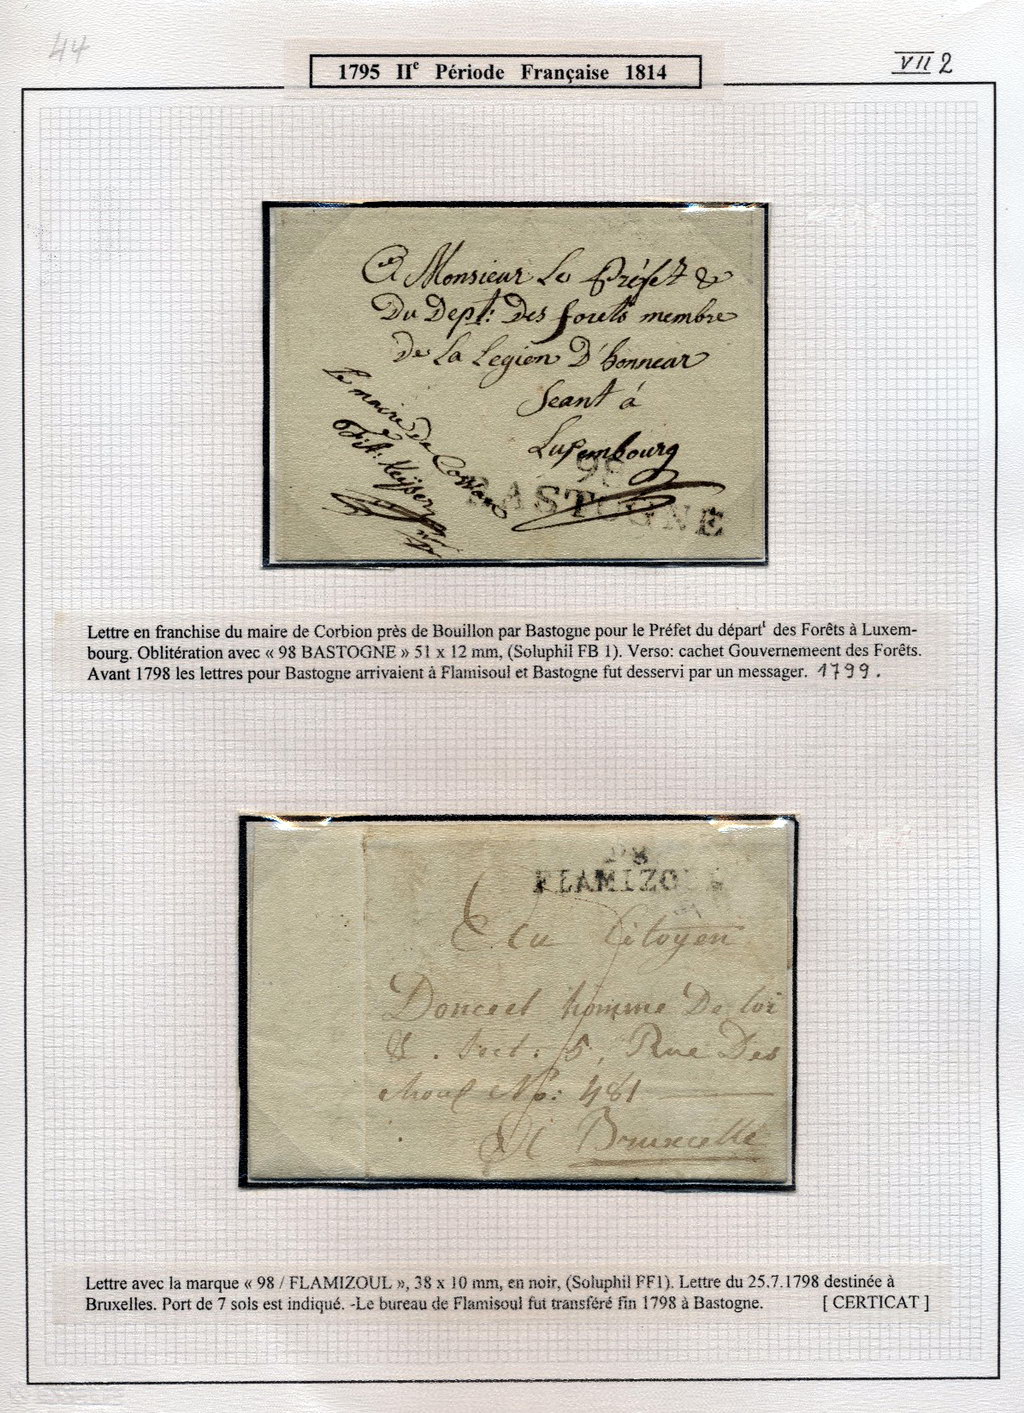 44
1795 IIe Période Française 1814
VII 2
A Monsieur Le Préfet
Du Dept: Des forets membre
De La Legion D'honneur
Seant á
Luxembourg
Le maire de
98
BASTOGNE
Lettre en franchise du maire de Corbion près de Bouillon par Bastogne pour le Préfet du départt des Forêts à Luxem-
bourg. Oblitération avec « 98 BASTOGNE » 51 x 12 mm, (Soluphil FB 1). Verso: cachet Gouvernemeent des Forêts.
Avant 1798 les lettres pour Bastogne arrivaient à Flamisoul et Bastogne fut desservi par un messager. 1799.
98
FLAMIZOUL
Au Citoyen
homme De loi
Sect: 5, Rue Des
No: 481
A Bruxelle
Lettre avec la marque « 98 / FLAMIZOUL », 38 x 10 mm, en noir, (Soluphil FF1). Lettre du 25.7.1798 destinée à
Bruxelles. Port de 7 sols est indiqué. -Le bureau de Flamisoul fut transféré fin 1798 à Bastogne. [ CERTICAT ]